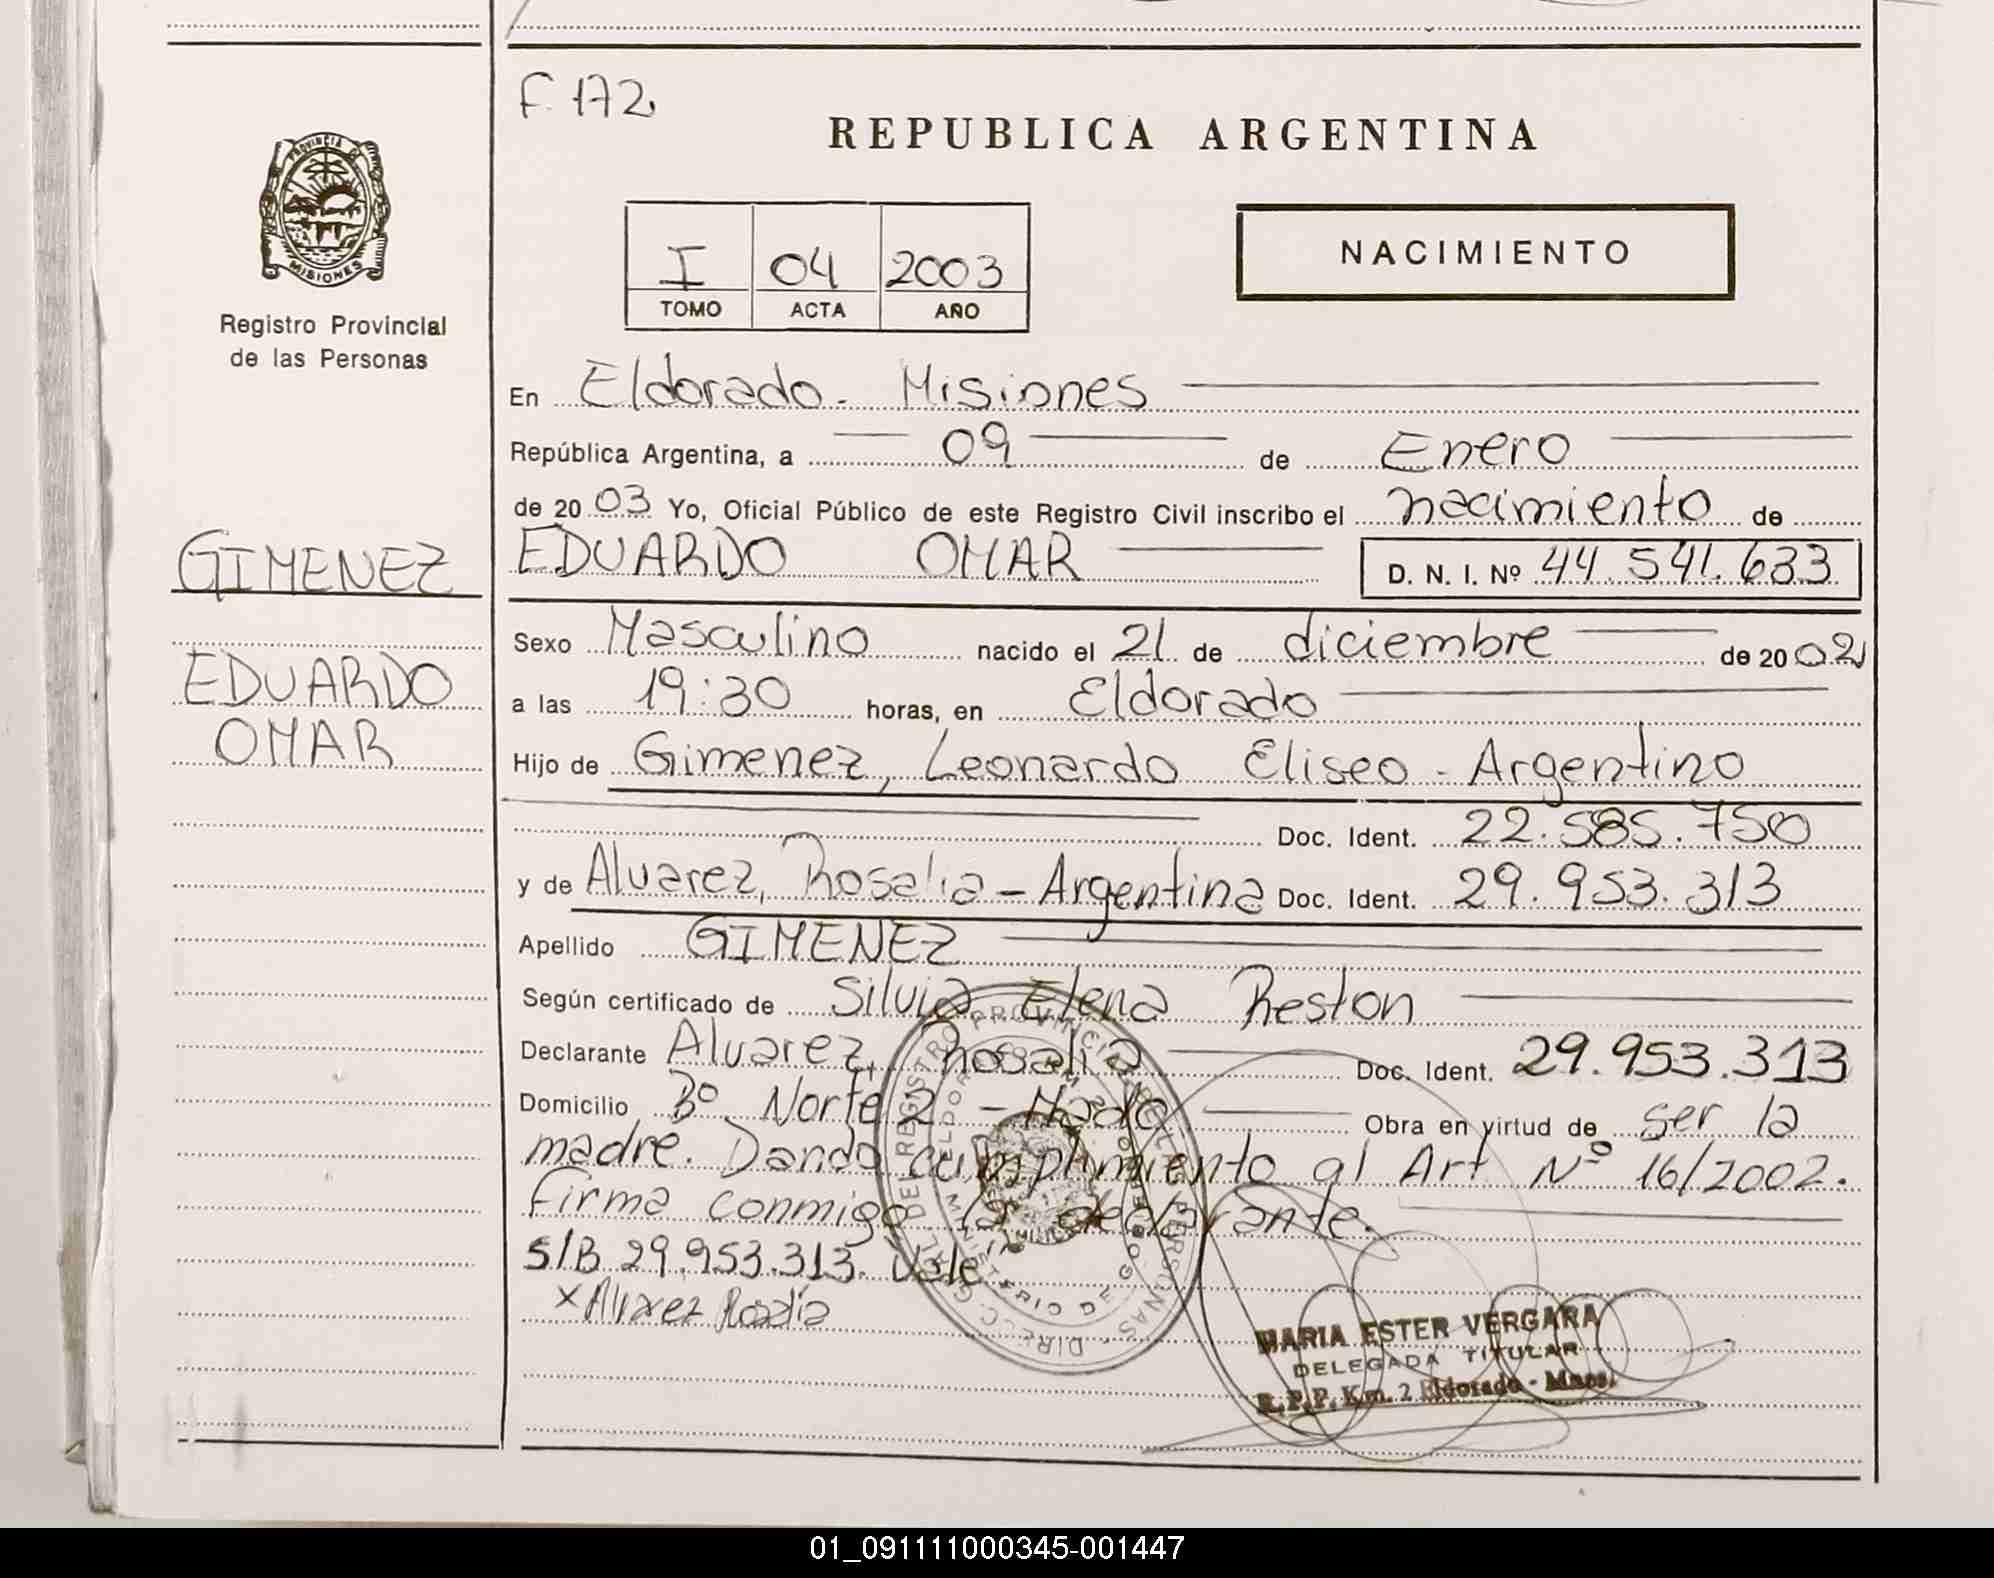 F. 172
REPUBLICA ARGENTINA
PROVINCIA DE
MISIONES
Registro Provincial
de las Personas
I 04 2003
TOMO ACTA AÑO
NACIMIENTO
En Eldorado. Misiones
República Argentina, a 09 de Enero
de 2003 Yo, Oficial Público de este Registro Civil inscribo el nacimiento de
GIMENEZ
EDUARDO OMAR D. N. I. Nº 44.541.633
Sexo Masculino nacido el 21 de diciembre de 2002
EDUARDO
OMAR
a las 19:30 horas, en Eldorado
Hijo de Gimenez, Leonardo Eliseo - Argentino
Doc. Ident. 22.585.750
y de Alvarez, Rosalia - Argentina Doc. Ident. 29.953.313
Apellido GIMENEZ
Según certificado de Silvia Elena Reston
Declarante Alvarez, Rosalia Doc. Ident. 29.953.313
Domicilio Bº Norte 2 - Mado Obra en virtud de ser la
madre. Dando cumplimiento al Art Nº 16/2002.
Firma conmigo la declarante.
S/B 29.953.313. Vale
x Alvarez Rosalia
MARIA ESTER VERGARA
DELEGADA TITULAR
R.P.P. Km. 2 Eldorado - Mnes.
01_091111000345-001447